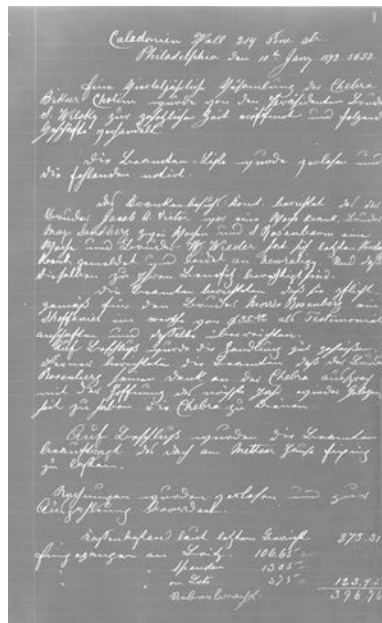 Caledonien Hall 214 Pine str.
Philadelphia den 10th Jany 1892. 5652
Eine Vierteljährliche Versammlung der Chebra
Bikur Cholim wurde von dem Präsident Bruder
S. Wilsky zur gesetzlichen Zeit eröffnet und folgende
Geschäfte gehandelt.
Die Beamten-Liste wurde gelesen und
die fehlenden notirt.
Das Krankenbesuch Komt. berichtet daß der
Bruder Jacob A. Victor war eine Woche krank, Bruder
Max Sandberg zwei Wochen und Rosenbaum eine
Woche und Bruder W. Wilder hat sich letzten
krank gemeldet und leidet an neuralgy. Und daß
dieselben zu ihren Benefit berechtigt sind.
Die Beamten berichteten daß sie
gemäß für den Bruder Morris Rosenberg ein
im werthe von $35.00 als Testimonial
anschafften und daßelbe überreichten.
Auf Beschluß wurde die Handlung gut geheißen.
Ferner berichteten die Beamten daß der Bruder
Rosenberg seinen Dank an der Chebra
mit der Hoffnung das nächste Jahr wieder Gelegen
heit zu haben die Chebra zu dienen.
Auf Beschluß wurden die Beamten
beauftragt das Dach am Metaar Hause
zu lassen.
Rechnungen wurden gelesen und zur
Auszahlung beordert.
Kassenbestand laut letztem Bericht 273.31
Eingegangen an Beitr. 106.65
" Spenden 13.05
" 3.75 123.45
Ueberbracht. 396.76